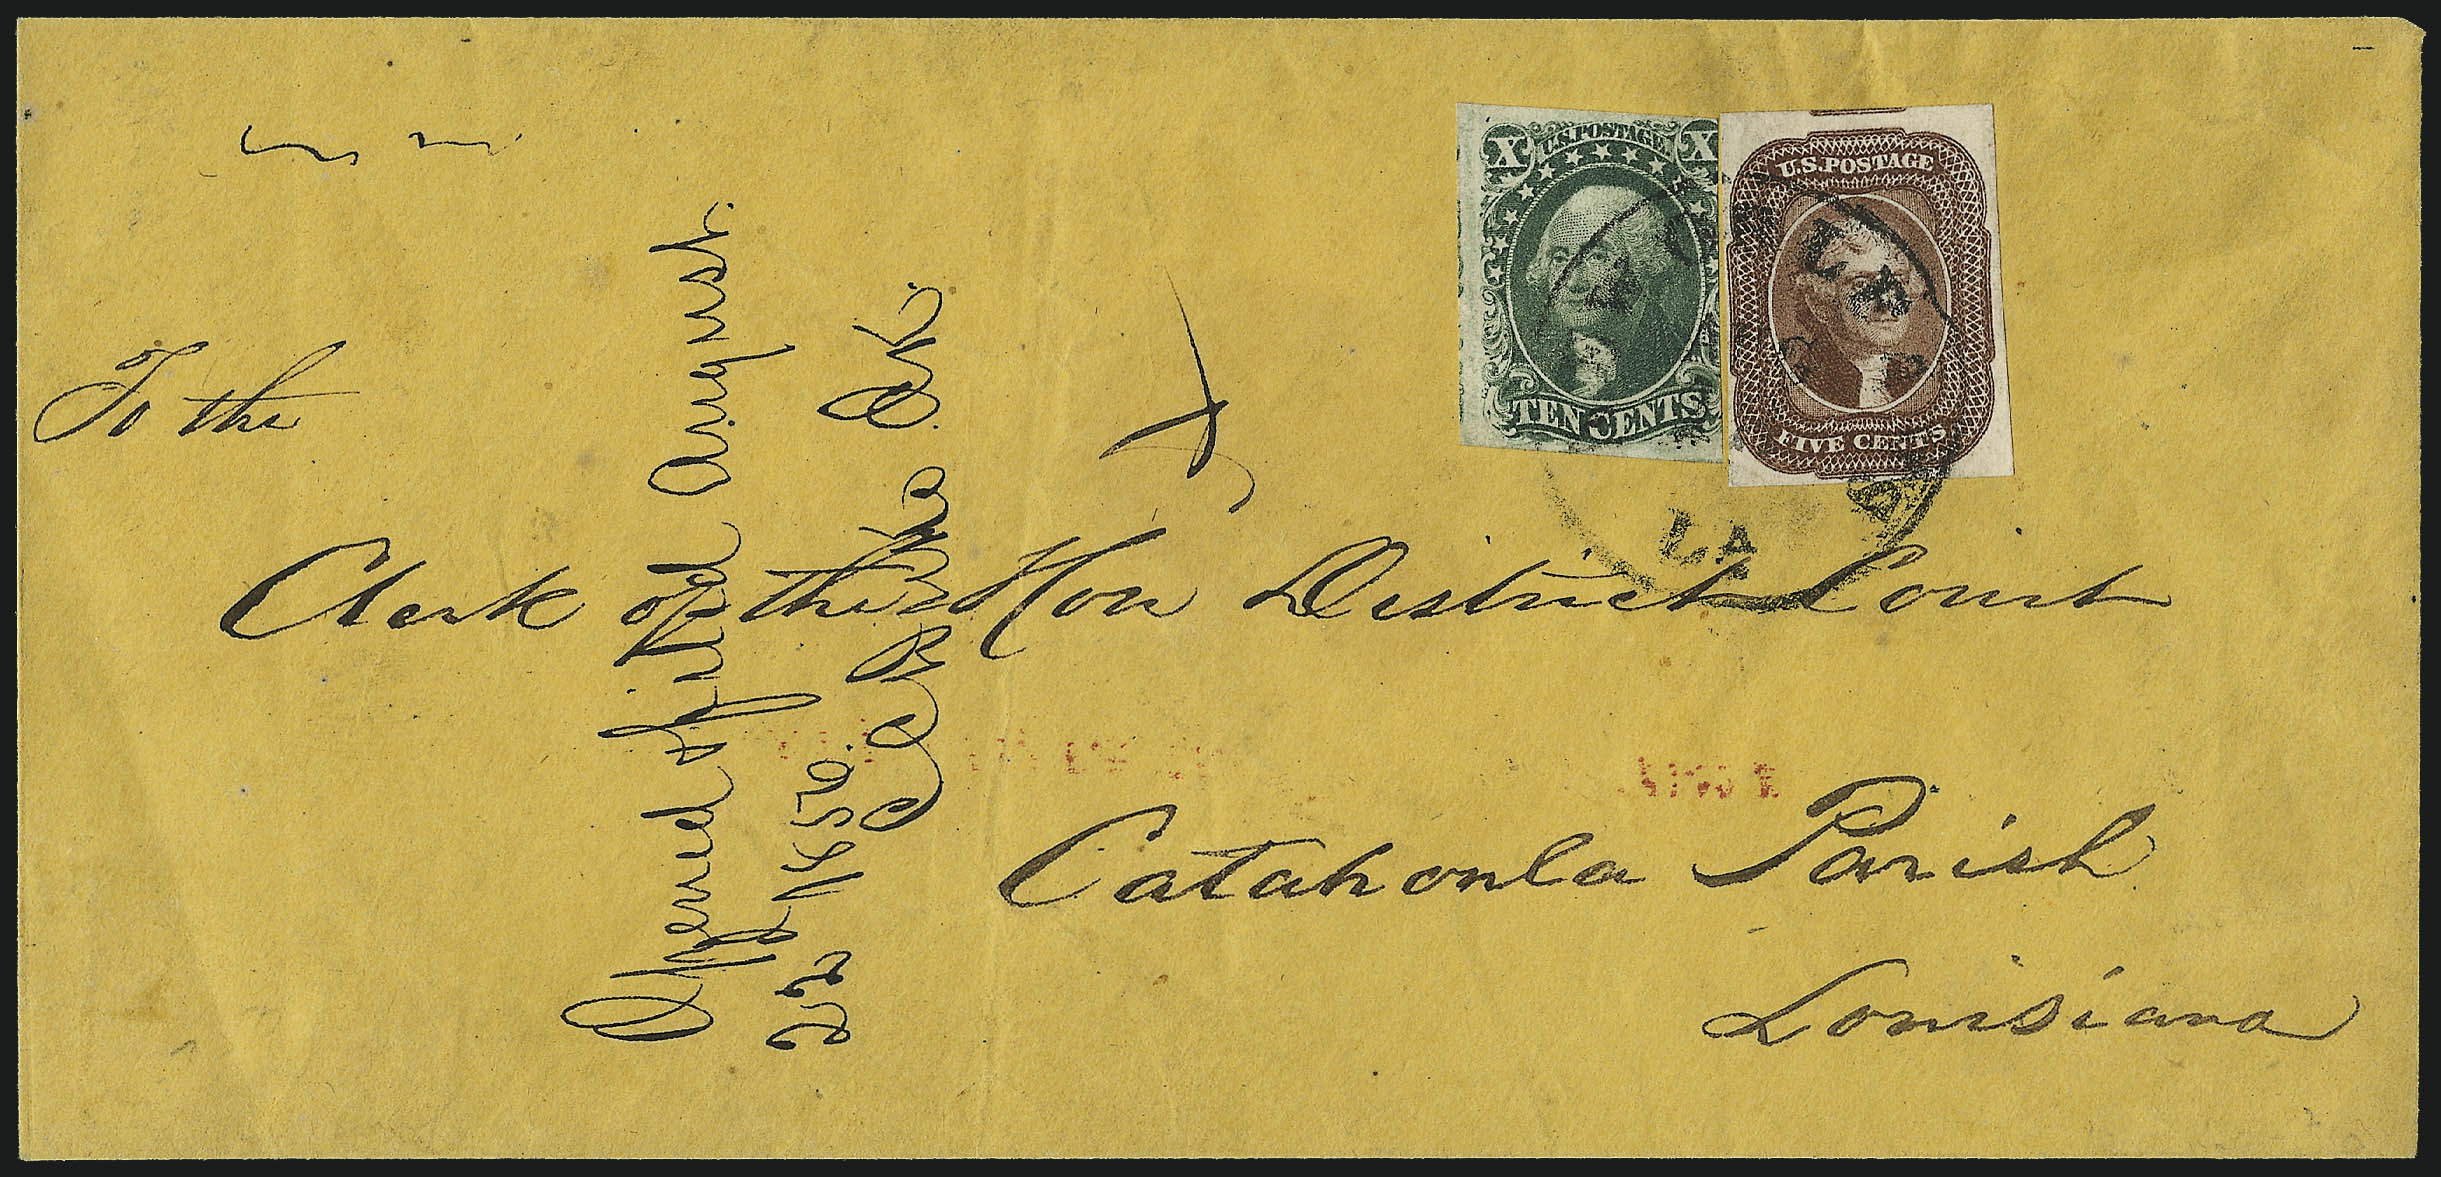 X U.S. POSTAGE. X
TEN CENTS
U.S. POSTAGE
FIVE CENTS
LA
To the
Clerk of the Hon District Court
Catahoula Parish
Louisiana
Opened & filed August
22nd 1859.
Clk.